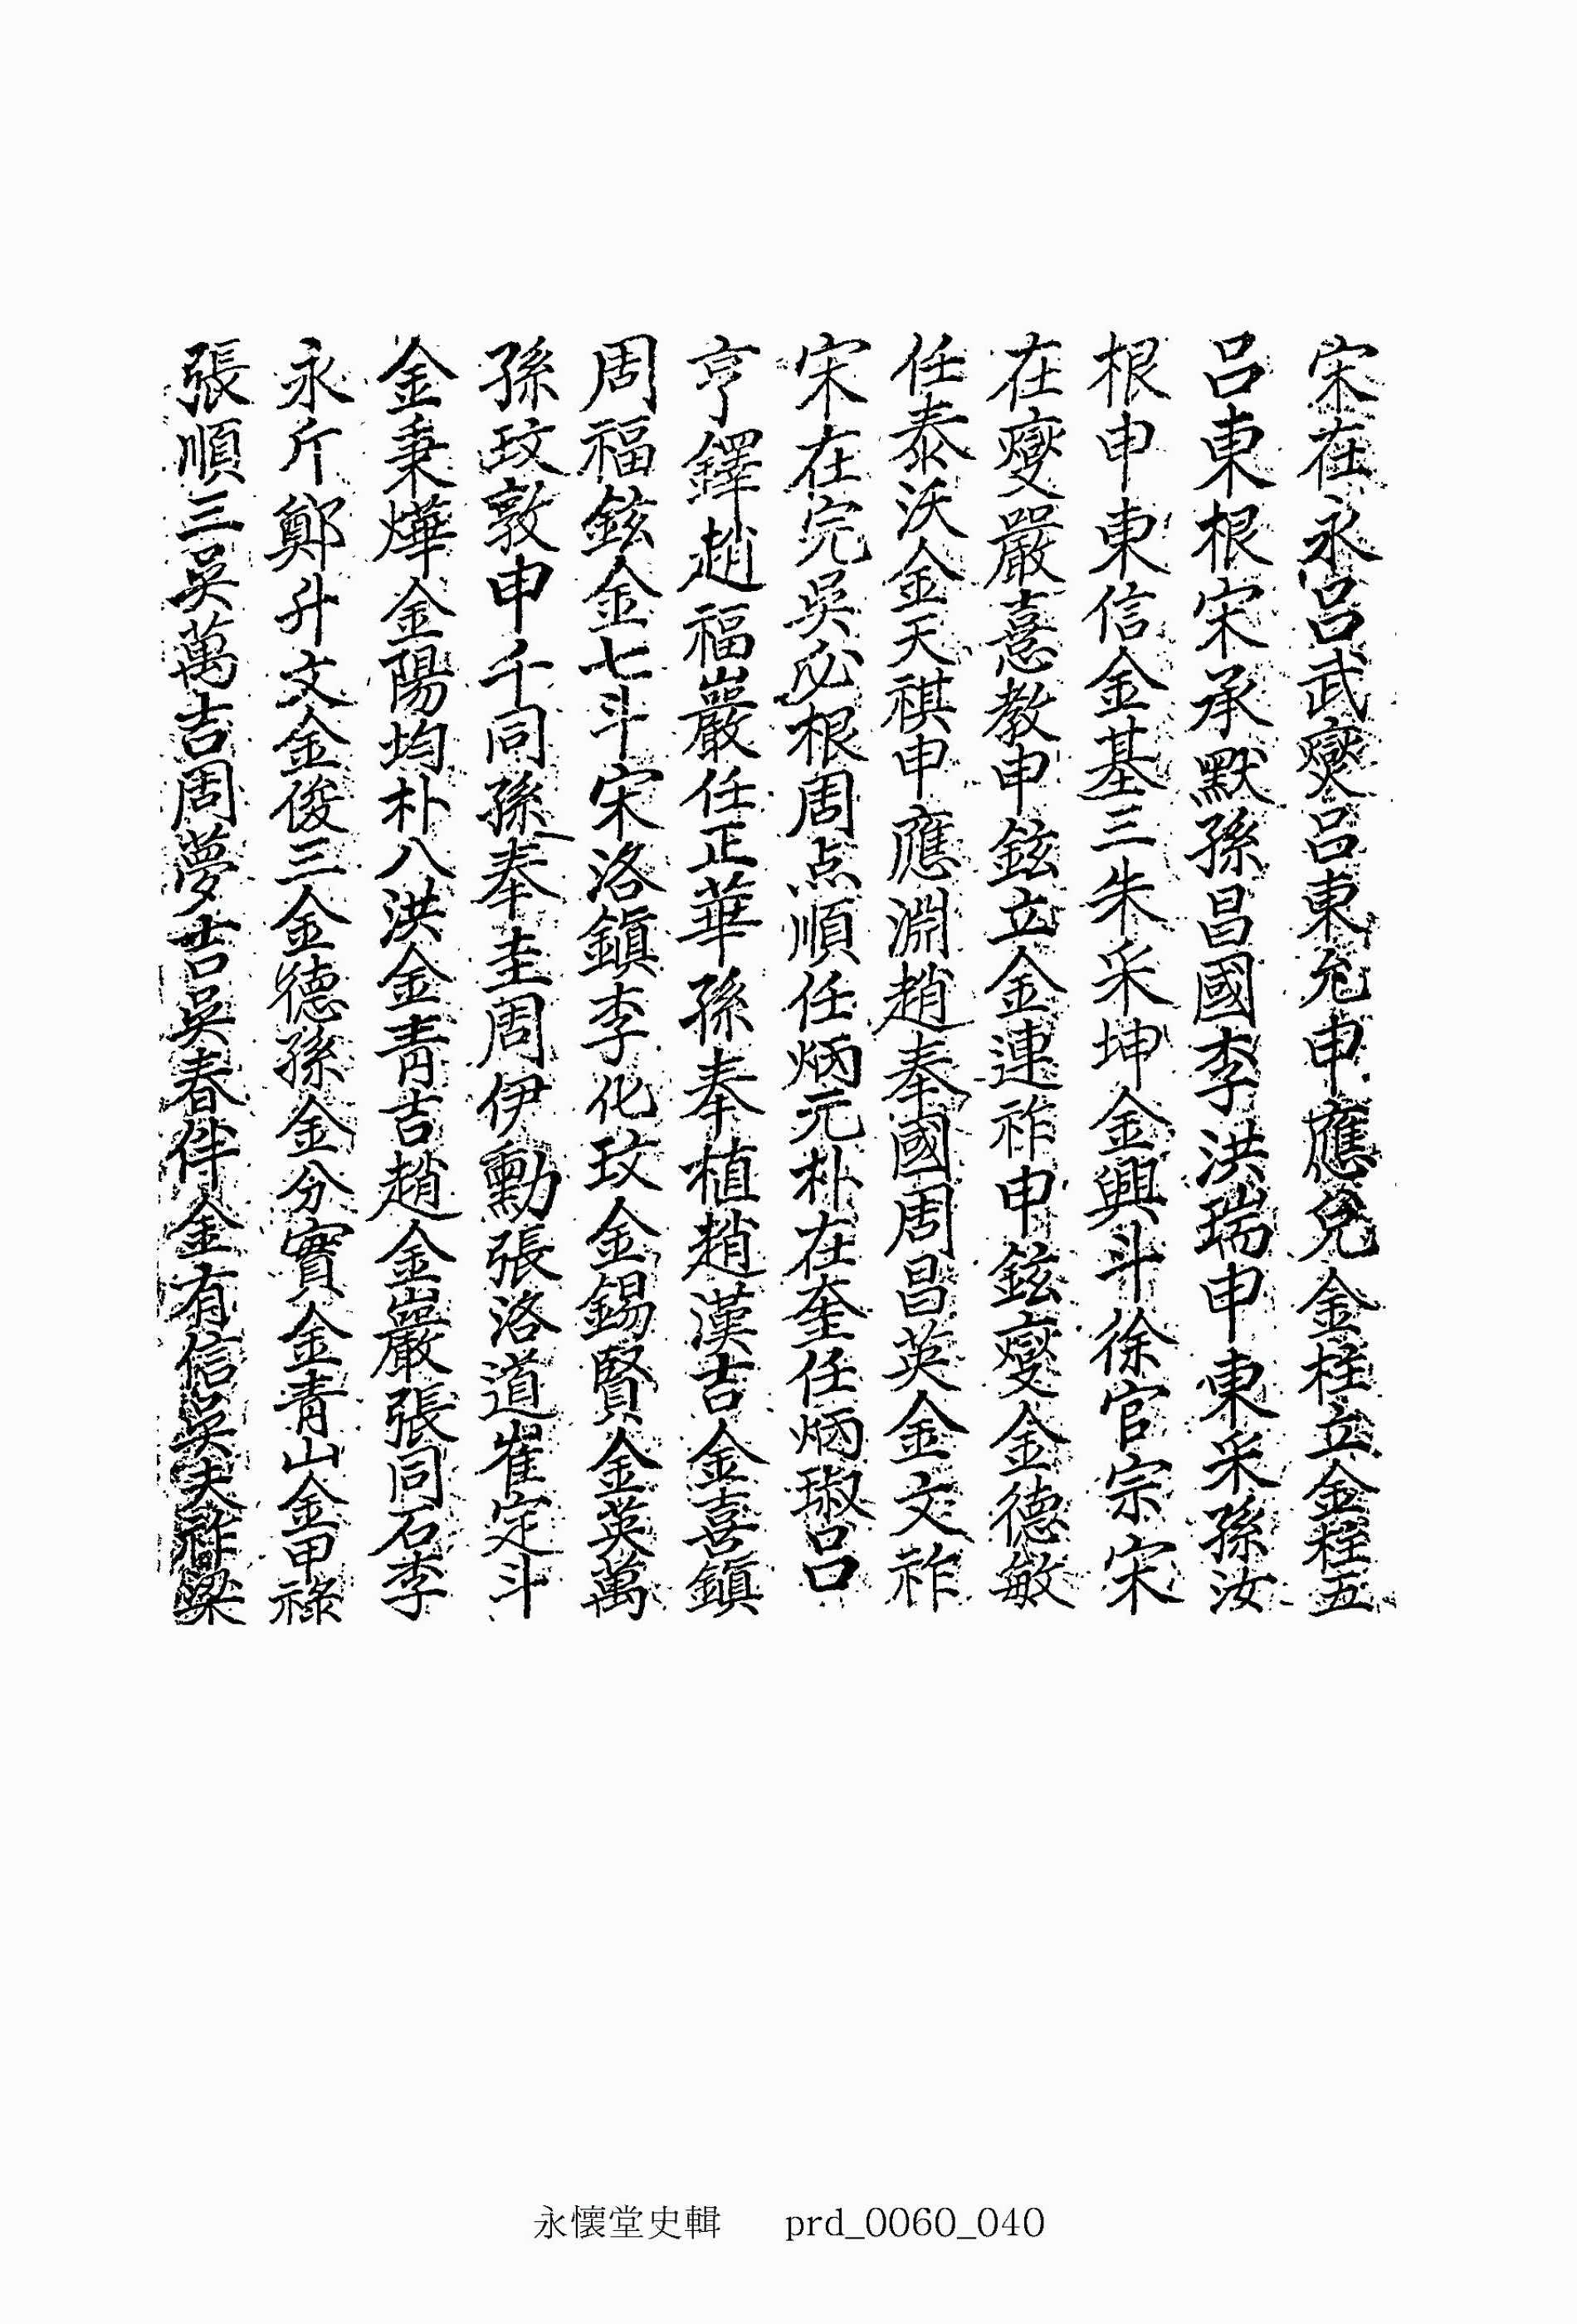 宋在永呂武燮呂東允申應兌金柱立金程五
呂東根宋承默孫昌國李洪瑞申東采孫汝
根申東信金基三朱采坤金興斗徐官宗宋
在燮嚴憙敎申鉉立金連祚申鉉燮金德敏
任泰沃金天祺申應淵趙奉國周昌英金文祚
宋在完吳必根周点順任炳元朴在奎任炳琡呂
亨鐸趙福巖任正華孫奉植趙漢吉金喜鎭
周福鉉金七斗宋洛鎭李化玟金錫賢金英萬
孫玟敦申千同孫奉圭周伊勳張洛道崔定斗
金秉燁金陽均朴八洪金靑吉趙金巖張同石李
永斤鄭升文金俊三金德孫金分實金靑山金甲祿
張順三吳萬吉周夢吉吳春伴金有信吳夫祚梁
永懷堂史輯 prd_0060_040